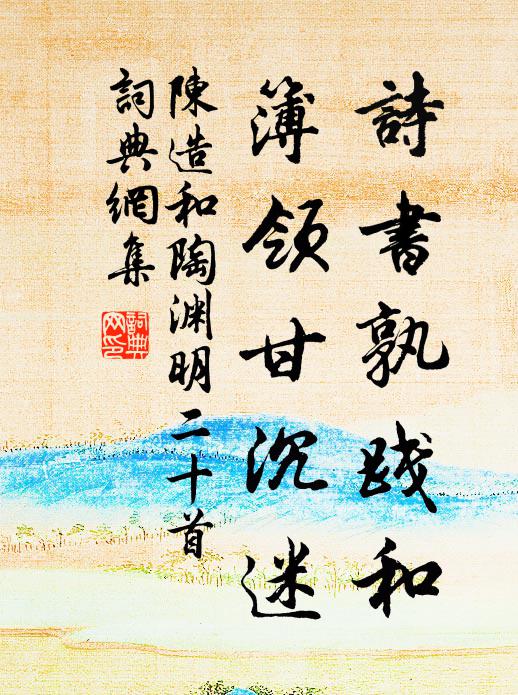 詩書孰踐和
簿領甘沉迷
陳造和陶淵明二十首
詞典網集
詞典
网印